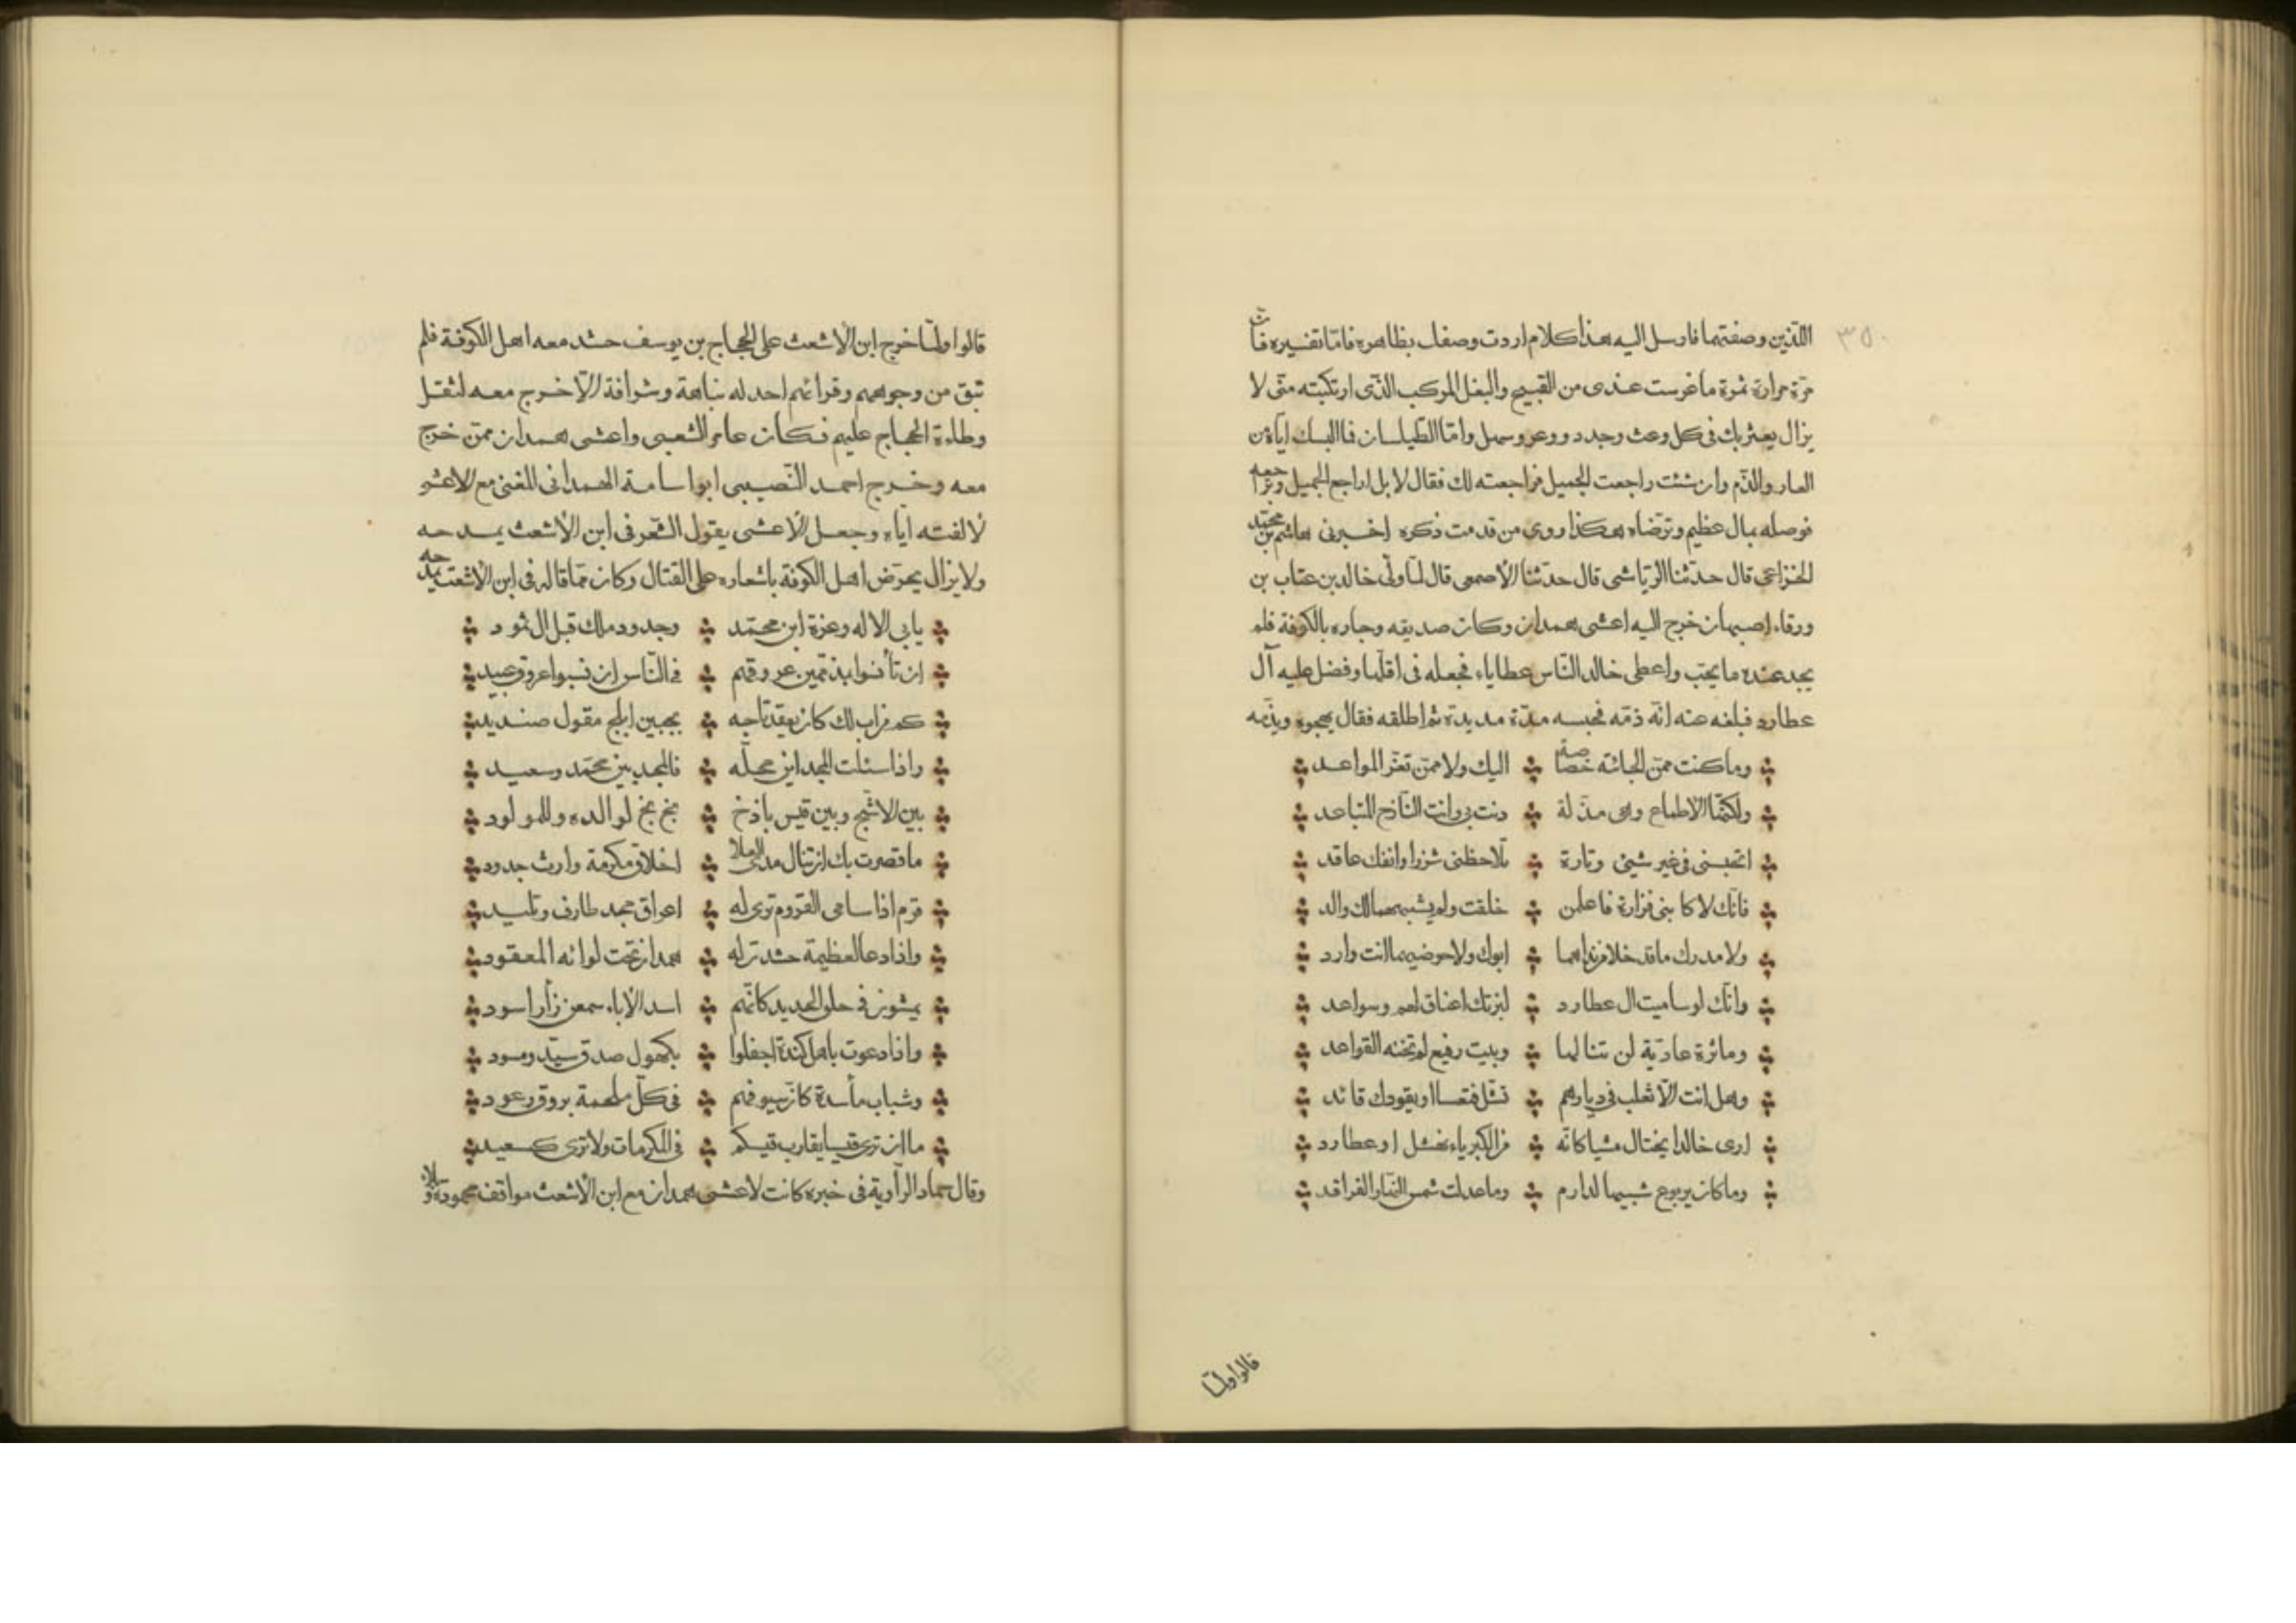 ٣٥٠
اللّذين وصفتهما فارسل اليه هذا كلام اردت وصفك بظاهره فامّا تفسيره فانّ
مرّة مرارة ثمرة ما غرست عندى من القبيح والبغل المركب الذّى ارتكبته منّى لا
يزال يعثر بك فى كل وعث وجدد ووعر وسهل وامّا الطّيلسان فاالبسك ايّاه من
العار والذّم وان شئت راجعت الجميل فراجعته لك فقال لا بل اراجع الجميل وتراجعه
فوصله بمال عظيم وترضّاه هكذا روى من قدمت ذكره اخبرنى هاشم بن محمّد
الخزاعى قال حدّثنا الرّياشى قال حدّثنا الأصمعى قال لمّا ولّى خالد بن عتاب بن
ورقاء اصبهان خرج اليه اعشى همدان وكان صديقه وجاره بالكوفة فلم
يجد عنده ما يحبّ واعطى خالد النّاس عطاياه فجعله فى اقلّها وفضل عليه آل
عطارد فبلغه عنه انّه ذمّه فحبسه مدّة مديدة ثم اطلقه فقال يهجوه ويذّمه
وما كنت ممّن الجاتّه خصاصة اليك ولا ممّن تغرّ المواعد
ولكنّما الاطماع وهى مذلة دنت بى وانت النّازح المتباعد
اتحبسنى فى غير شيئ وتارة تلاحظنى شزرا وانفك عاقد
فانّك لا كا بنى فزارة فاعلمن خلقت ولم يشبههما لك والد
ولا مدرك ما قد خلا من نداهما ابوك ولا حوضيهما انت وارد
وانّك لو ساميت ال عطارد لبزتك اعناق لهم وسواعد
وماثرة عاديّة لن تنالها وبيت رفيع لم تخنه القواعد
وهل انت الّا ثعلب فى ديارهم تشّل فتعسا او يقودك قائد
ارى خالدا يختال مشيا كانّه من الكبرياء نهشل او عطارد
وما كان يربوع شبيها لدارم وما عدلت شمس النّهار الفراقد
قالوا ولمّا
قالوا ولمّا خرج ابن الأشعث على الحجاج بن يوسف حشد معه اهل الكوفة فلم
تبق من وجوههم وقرائهم احد له نباهة وشرافة الّا خرج معه لثقل
وطاءة الحجاج عليهم فكان عامر الشعبى واعشى همدان ممّن خرج
معه وخرج احمد النّصيبى ابو اسامة الهمدانى المغنى مع الاعشى
لالفته ايّاه وجعل الأعشى يقول الشعر فى ابن الأشعث يمدحه
ولا يزال يحرّض اهل الكوفة باشعاره على القتال وكان ممّا قاله فى ابن الأشعث يمدحه
يابى الاله وعزة ابن محمّد وجدود ملك قبل ال ثمود
ان تأنسوا بذمّمين عروقهم فى النّاس ان نسبوا عروق عبيد
كم من اب لك كان يعقد تاجه بجبين ابلج مقول صنديد
واذا سئلت المجد اين محلّه فالمجد بين محمّد وسعيد
بين الاشّج وبين قيس باذخ بخ بخ لوالده وللمولود
ما قصرت بك ان تنال مدى العلا اخلاق مكرمة وارث جدود
قرم اذا سامى القروم ترى له اعراق مجد طارف وتليد
واذا دعا لعظيمة حشدت له همدان تحت لوائه المعقود
يمشون فى حلق الحديد كانّهم اسد الأباء سمعن زأر اسود
واذا دعوت باهل كندة اجفلوا بكهول صدق سيّد ومسود
وشباب مأسدة كانّ سيوفهم فى كلّ ملحمة بروق رعود
ما ان ترى قيسا يقارب قيسكم فى المكرمات ولا ترى كسعيد
وقال حماد الرّاوية فى خبره كانت لاعشى همدان مع ابن الأشعث مواقف محمودة وبلاء